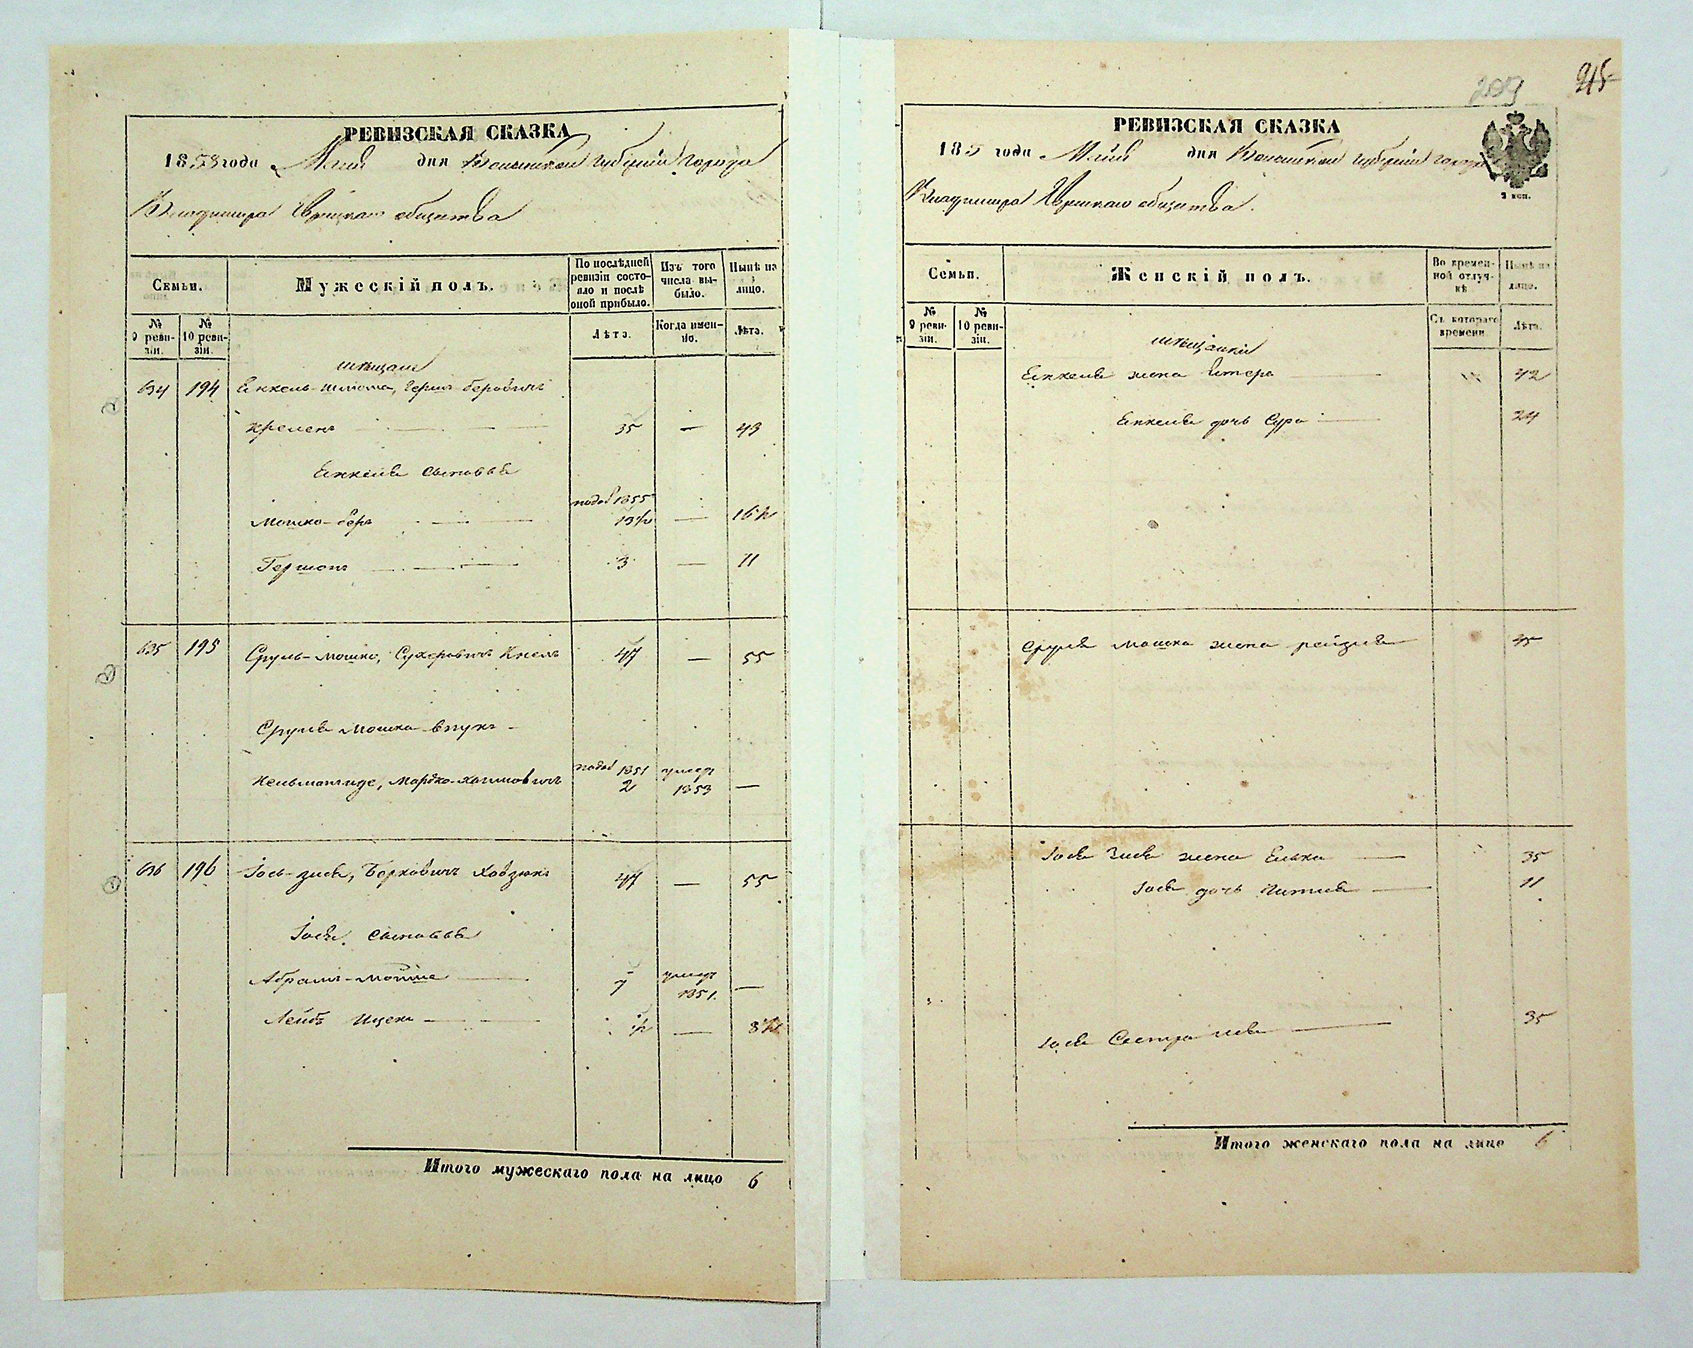 245
209
РЕВИЗСКАЯ СКАЗКА
1858 года Мая дня Волынской губернии города
Владимира Еврейскаго общества
Семьи.
Мужескій полъ.
По послѣдней ревизіи состояло и послѣ оной прибыло.
Изъ того числа выбыло.
Нынѣ на лицо.
№ 9 ревизіи.
№ 10 ревизіи.
Лѣта.
Когда именно.
Лѣта.
мѣщане
634 194 Енкель-Шлиома, Герш-Беровичъ
Кремень 35 — 43
Енкеля сыновья
Мошко-Беръ 1855 13½ — 16½
Гершонъ 3 — 11
635 195 Сруль-Мошко, Сухеровичъ 47 — 55
Сруля Мошка внукъ
Кельманъ-Иде, Мордко-Хаимовичъ 1851 2 умеръ 1853 —
636 196 Іось-Зися, Берковичъ 47 — 55
Іося сыновья
Абрамъ-Мойше 7 умеръ 1851 —
Лейбъ Ицекъ ½ — 8½
Итого мужескаго пола на лицо 6
РЕВИЗСКАЯ СКАЗКА
185 года Мая дня Волынской губерніи города
2 коп.
Владимира Еврейскаго общества.
Семьи.
Женскій полъ.
Во временной отлучкѣ
Нынѣ на лицо.
№ 9 ревизіи.
№ 10 ревизіи.
Съ котораго времени.
Лѣта.
мѣщанки
Енкеля жена Етера 42
Енкеля дочь Сура 24
Сруля Мошка жена Рейзля 45
Іося Зися жена Елька 35
Іося дочь 11
Іося сестра 35
Итого женскаго пола на лицо 6